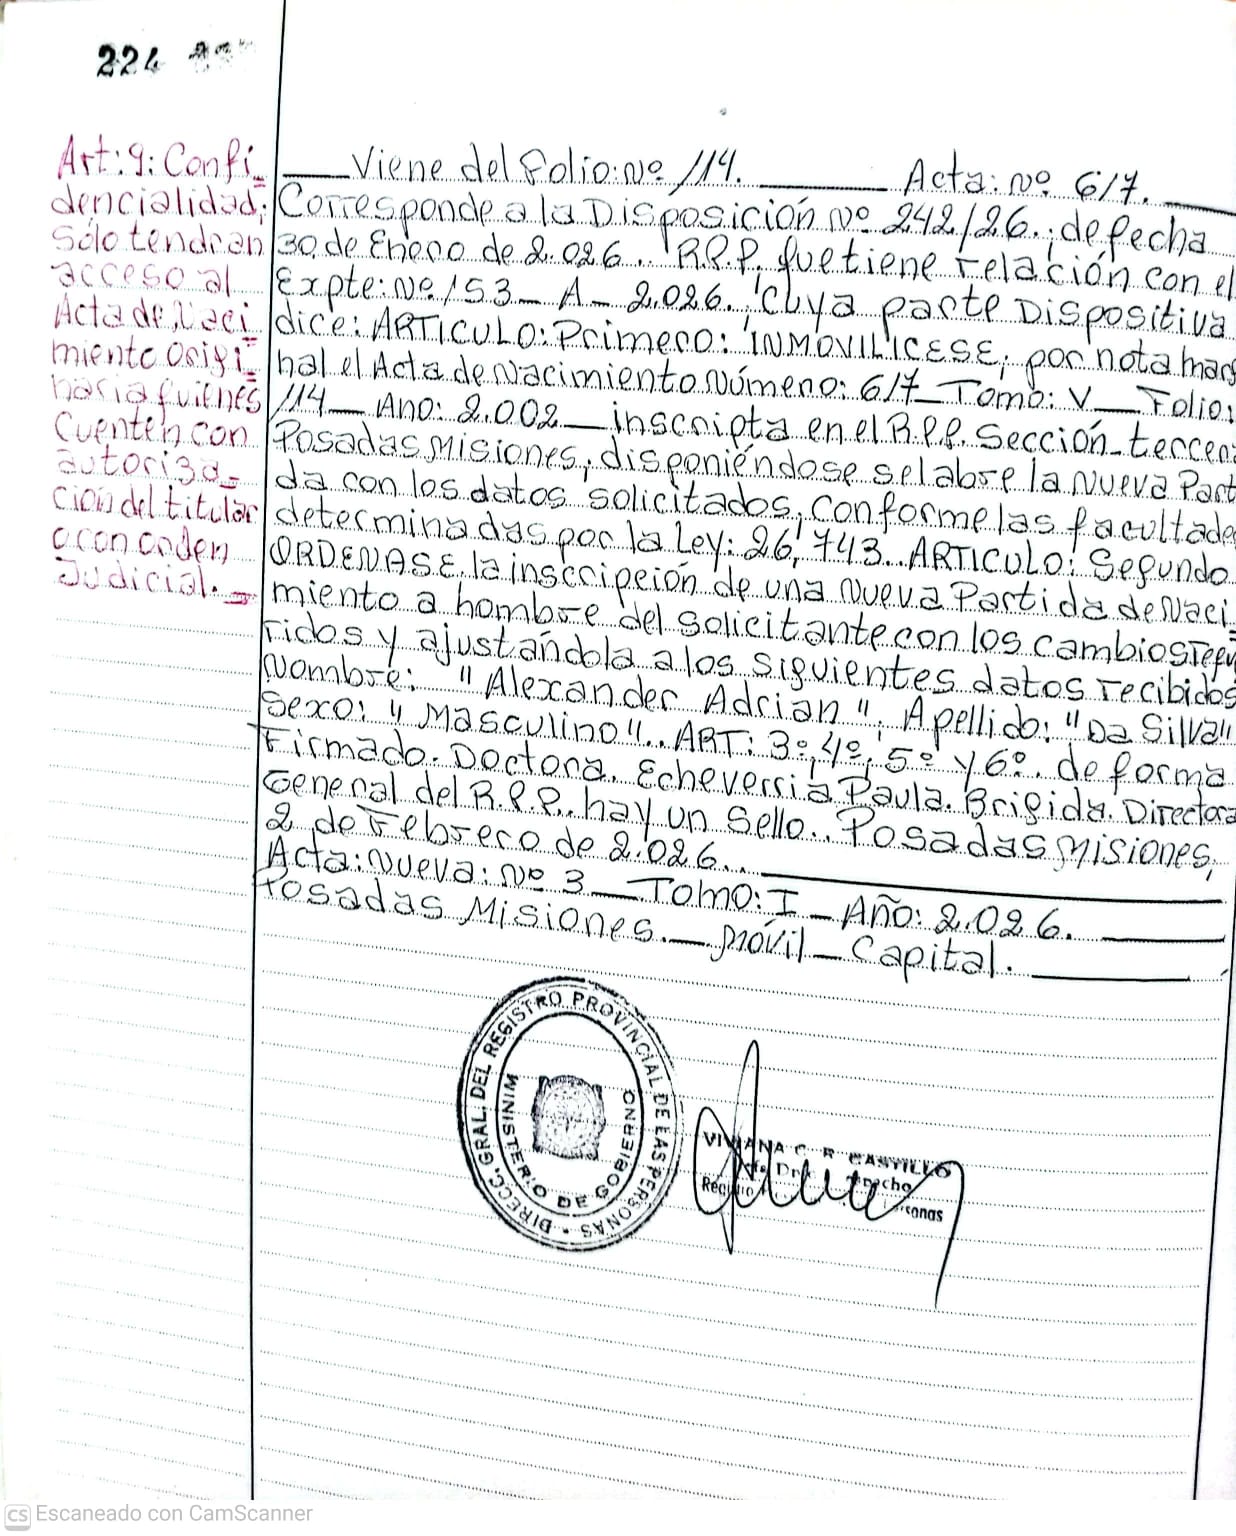 224
Art: 9: Confi_
dencialidad;
Sólo tendran
acceso al
Acta de Naci
miento Origi_
naria quienes
Cuenten con
autoriza_
ción del titular
o con orden
Judicial._
Viene del Folio: Nº 114. Acta: Nº 617.
Corresponde a la Disposición Nº 242/26.; de fecha
30 de Enero de 2.026.. R.P.P. que tiene relación con el
Expte: Nº 153_ A_ 2.026., cuya parte Dispositiva
dice: ARTICULO: Primero: INMOVILICESE, por nota marg
nal el Acta de Nacimiento Número: 617_ Tomo: V_ Folio:
114_ Ano: 2.002_ inscripta en el R.P.P. Sección_ tercera
Posadas Misiones, disponiéndose se labre la Nueva Part
da con los datos solicitados, conforme las facultades
determinadas por la Ley: 26,743.. ARTICULO: Segundo
ORDENASE, la inscripción de una Nueva Partida de Naci
miento a hombre del solicitante con los cambios refe
ridos y ajustándola a los siguientes datos recibidos
Nombre: "Alexander Adrian", Apellido: "Da Silva"
Sexo: "Masculino".. ART: 3º, 4º, 5º y 6º. de forma
Firmado. Doctora. Echeverria Paula. Brigida. Directora
General del R.P.P.. hay un Sello.. Posadas Misiones,
2 de Febrero de 2.026..
Acta: Nueva: Nº 3_ Tomo: I_ Año: 2.026.
Posadas Misiones._ Móvil_ Capital.
DIRECC. GRAL. DEL REGISTRO PROVINCIAL DE LAS PERSONAS -
MINISTERIO DE GOBIERNO
VIVIANA C. R. CASTILLO
CS Escaneado con CamScanner